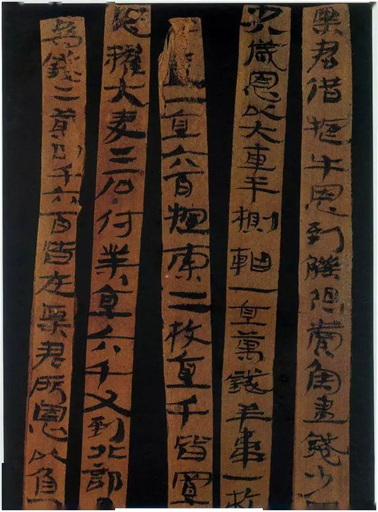 粟君借牛恩到觻得賣魚盡錢少
少八歲恩以大車半軸一直萬錢羊韋一枚
一直六百索二枚直千皆置
恩糴大麥二石付業直六千又到北部
為錢二萬四千六百皆在粟君所恩以負